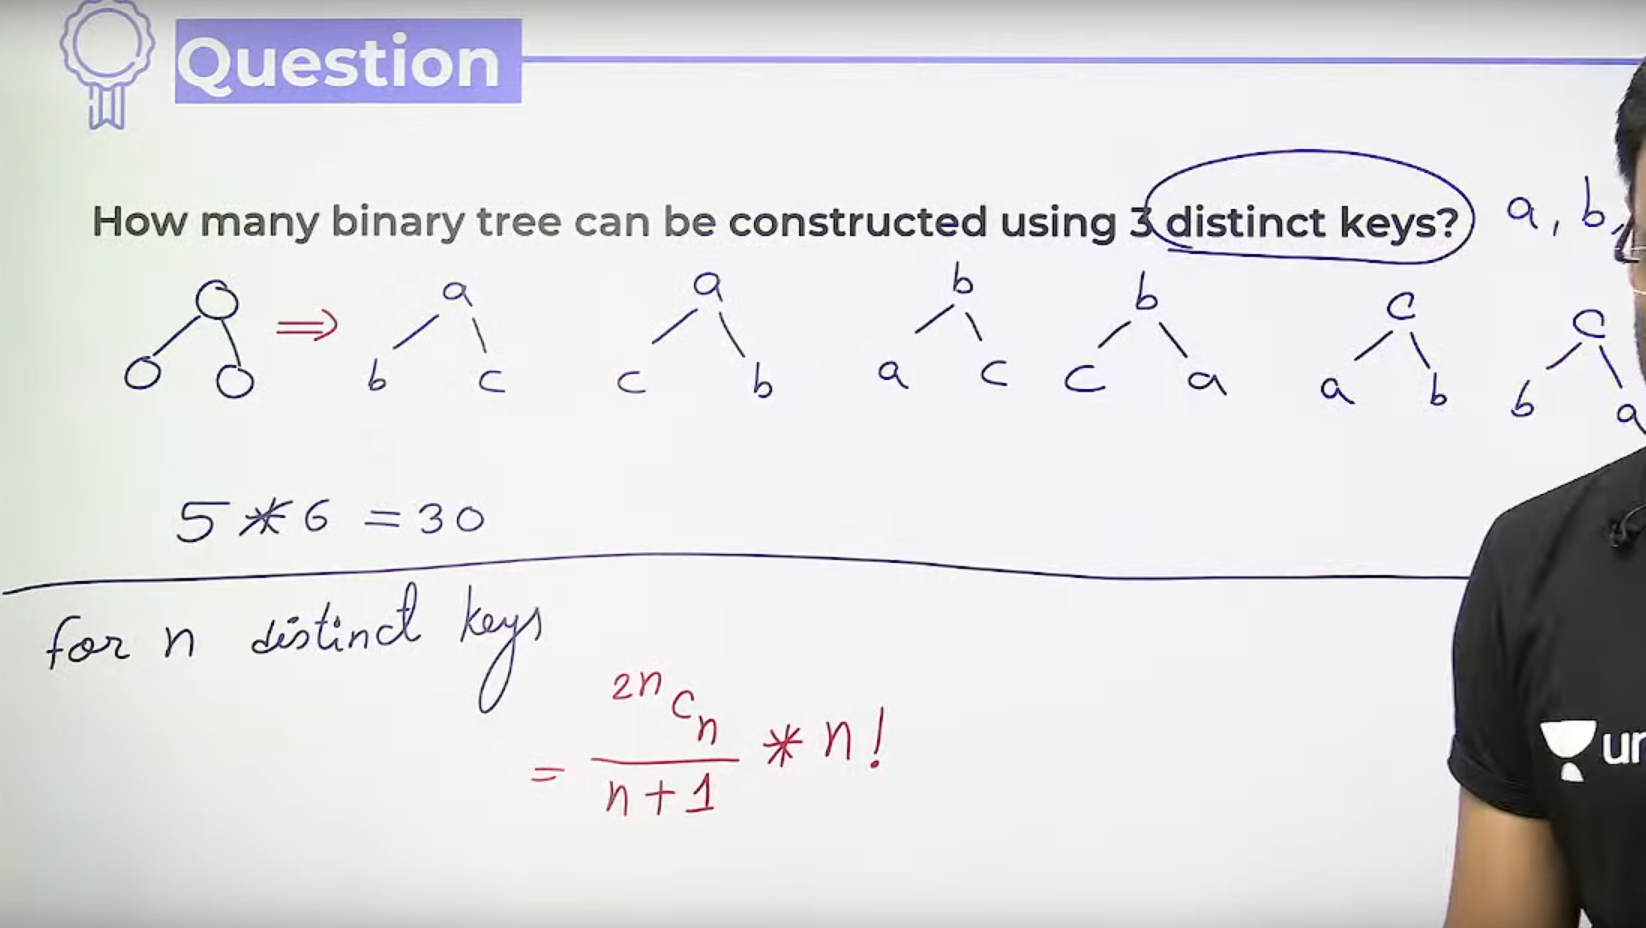 Question
How many binary tree can be constructed using 3 distinct keys? a, b,
⇒ a a b b c c
b c c b a c c a a b b a
5 * 6 = 30
for n distinct keys
= ²ⁿCₙ / (n+1) * n!